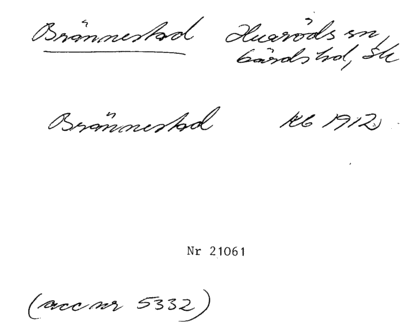 Brännestad Huaröds sn,
Gärds hd, Sk
Brännestad Kb 1912
Nr 21061
(acc nr 5332)